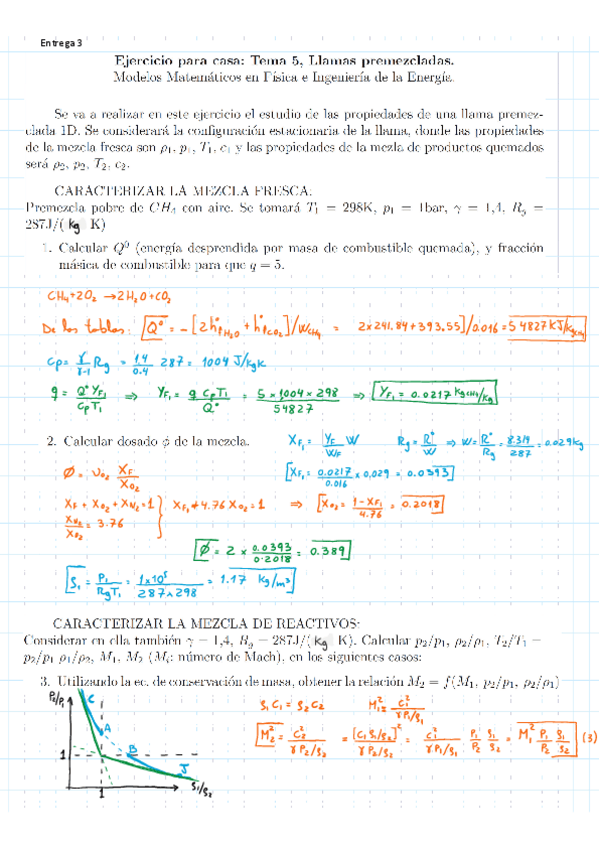 Entrega 3
Ejercicio para casa: Tema 5, Llamas premezcladas.
Modelos Matemáticos en Física e Ingeniería de la Energía.
Se va a realizar en este ejercicio el estudio de las propiedades de una llama premez-
clada 1D. Se considerará la configuración estacionaria de la llama, donde las propiedades
de la mezcla fresca son ρ₁, p₁, T₁, c₁ y las propiedades de la mezla de productos quemados
será ρ₂, p₂, T₂, c₂.
CARACTERIZAR LA MEZCLA FRESCA:
Premezcla pobre de CH₄ con aire. Se tomará T₁ = 298K, p₁ = 1bar, γ = 1,4, R_g =
287J/( kg K)
1. Calcular Q⁰ (energía desprendida por masa de combustible quemada), y fracción
másica de combustible para que q = 5.
CH₄+2O₂ → 2H₂O+CO₂
De las tablas: Q° = -[2h°f,H₂O + h°f,CO₂]/W_CH₄ = 2x241.84+393.55]/0.016 = 54827 kJ/kg CH₄
Cp = γ/(γ-1) Rg = 1.4/0.4 287 = 1004 J/kgK
q = Q° Y_F₁/(Cp T₁) ⇒ Y_F₁ = q Cp T₁/Q° = 5x1004x298/54827 ⇒ Y_F₁ = 0.0217 kg CH₄/kg
2. Calcular dosado φ de la mezcla. X_F₁ = Y_F/W_F W Rg = R°/W ⇒ W = R°/Rg = 8.314/287 = 0.029kg
Ø = ν_O₂ X_F/X_O₂ [X_F₁ = 0.0217/0.016 x 0,029 = 0.0393]
X_F + X_O₂ + X_N₂ = 1 } X_F₁ + 4.76 X_O₂ = 1 ⇒ [X_O₂ = (1-X_F₁)/4.76 = 0.2018]
X_N₂/X_O₂ = 3.76
Ø = 2 x 0.0393/0.2018 = 0.389
ρ₁ = P₁/(Rg T₁) = 1x10⁵/(287x298) = 1.17 kg/m³
CARACTERIZAR LA MEZCLA DE REACTIVOS:
Considerar en ella también γ = 1,4, R_g = 287J/( kg K). Calcular p₂/p₁, ρ₂/ρ₁, T₂/T₁ =
p₂/p₁ ρ₁/ρ₂, M₁, M₂ (Mᵢ: número de Mach), en los siguientes casos:
3. Utilizando la ec. de conservación de masa, obtener la relación M₂ = f(M₁, p₂/p₁, ρ₂/ρ₁)
P₂/P₁ C A B J 1 1 ρ₁/ρ₂
ρ₁ C₁ = ρ₂ C₂ M₁² = C₁²/(γP₁/ρ₁)
M₂² = C₂²/(γ P₂/ρ₂) = [C₁ ρ₁/ρ₂]²/(γ P₂/ρ₂) = C₁²/(γ P₁/ρ₁) P₁/P₂ ρ₁/ρ₂ = M₁² P₁/P₂ ρ₁/ρ₂ (3)